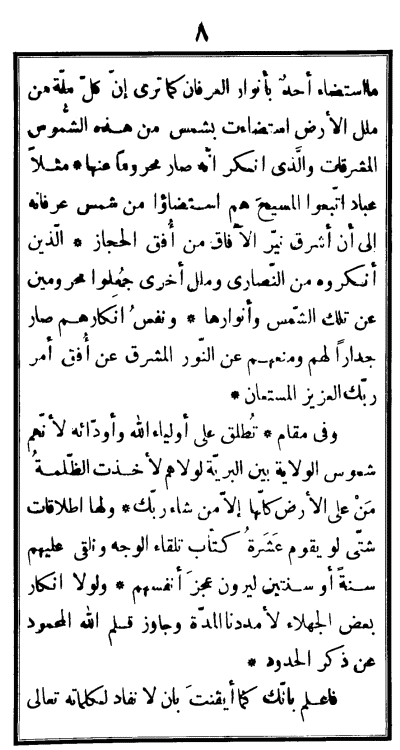 ٨
ما استضاء أحدٌ بأنوار العرفان كما ترى إنّ كلّ ملّة من
ملل الأرض استضاءت بشمس من هذه الشّموس
المشرقات والّذى انكر انّه صار محروماً عنها * مثلاً
عباد اتّبعوا المسيحَ هم استضاؤا من شمس عرفانه
إلى أن أشرق نيّر الآفاق من أُفق الحجاز * الّذين
أنكروه من النّصارى وملل أخرى جُعِلوا محرومين
عن تلك الشّمس وأنوارها * ونفسُ انكارهم صار
جداراً لهم ومنعهم عن النّور المشرق عن أُفق أمر
ربّك العزيز المستعان *
وفى مقام * تُطلق على أولياء الله وأودّائه لأنّهم
شموس الولاية بين البريّة لولاهم لأخذت الظّلمةُ
مَنْ على الأرض كلّها إلاّ من شاء ربّك * ولها اطلاقات
شتّى لو يقوم عَشَرةُ كتّاب تلقاء الوجه ونلقى عليهم
سنةً أو سنتين ليرون عجزَ أنفسهم * ولولا انكار
بعض الجهلاء لأمددنا المدّة وجاوز قلم الله المحمود
عن ذكر الحدود *
فاعلم بانّك كما أيقنتَ بان لا نفاد لكلماته تعالى